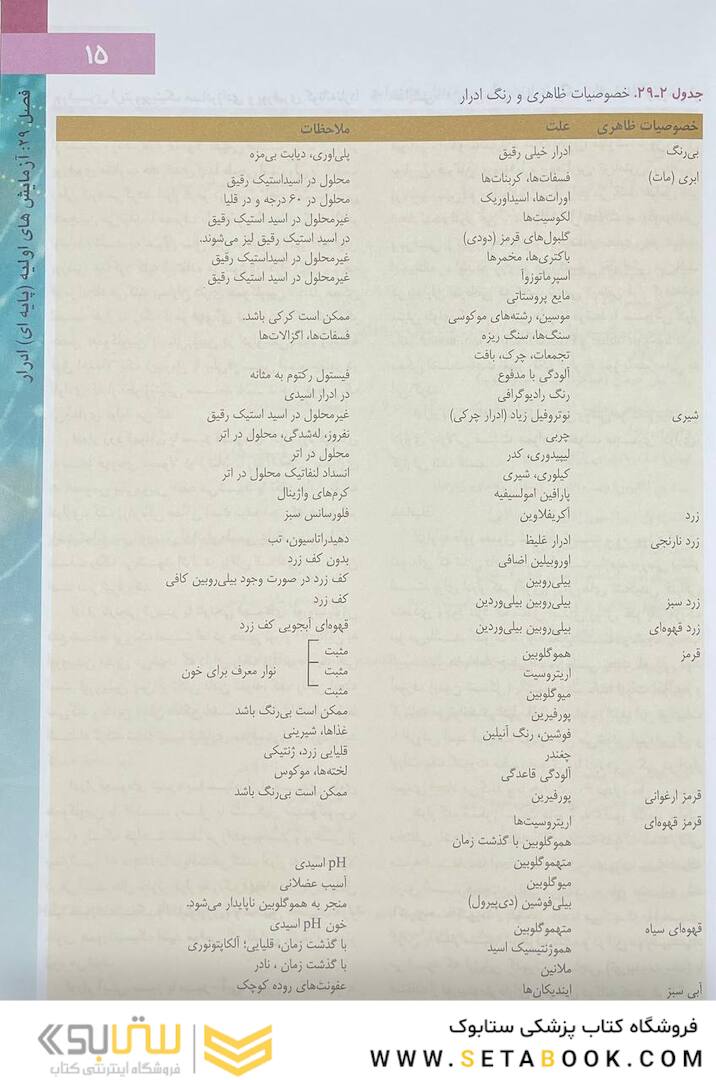 ۱۵
فصل ۲۹: آزمایش های اولیه (پایه ای) ادرار
جدول ۲-۲۹. خصوصیات ظاهری و رنگ ادرار
خصوصیات ظاهری علت ملاحظات
بی‌رنگ ادرار خیلی رقیق پلی‌اوری، دیابت بی‌مزه
ابری (مات) فسفات‌ها، کربنات‌ها محلول در اسیداستیک رقیق
اورات‌ها، اسیداوریک محلول در ۶۰ درجه و در قلیا
لکوسیت‌ها غیرمحلول در اسید استیک رقیق
گلبول‌های قرمز (دودی) در اسید استیک رقیق لیز می‌شوند.
باکتری‌ها، مخمرها غیرمحلول در اسیداستیک رقیق
اسپرماتوزوآ غیرمحلول در اسید استیک رقیق
مایع پروستاتی
موسین، رشته‌های موکوسی ممکن است کرکی باشد.
سنگ‌ها، سنگ ریزه فسفات‌ها، اگزالات‌ها
تجمعات، چرک، بافت
آلودگی با مدفوع فیستول رکتوم به مثانه
رنگ رادیوگرافی در ادرار اسیدی
شیری نوتروفیل زیاد (ادرار چرکی) غیرمحلول در اسید استیک رقیق
چربی نفروز، له‌شدگی، محلول در اتر
لیپیدوری، کدر محلول در اتر
کیلوری، شیری انسداد لنفاتیک محلول در اتر
پارافین امولسیفیه کرم‌های واژینال
زرد آکریفلاوین فلورسانس سبز
زرد نارنجی ادرار غلیظ دهیدراتاسیون، تب
اوروبیلین اضافی بدون کف زرد
بیلی‌روبین کف زرد در صورت وجود بیلی‌روبین کافی
زرد سبز بیلی‌روبین بیلی‌وردین کف زرد
زرد قهوه‌ای بیلی‌روبین بیلی‌وردین قهوه‌ای آبجویی کف زرد
قرمز هموگلوبین مثبت
اریتروسیت مثبت نوار معرف برای خون
میوگلوبین مثبت
پورفیرین ممکن است بی‌رنگ باشد
فوشین، رنگ آنیلین غذاها، شیرینی
چغندر قلیایی زرد، ژنتیکی
آلودگی قاعدگی لخته‌ها، موکوس
قرمز ارغوانی پورفیرین ممکن است بی‌رنگ باشد
قرمز قهوه‌ای اریتروسیت‌ها
هموگلوبین با گذشت زمان
متهموگلوبین pH اسیدی
میوگلوبین آسیب عضلانی
بیلی‌فوشین (دی‌پیرول) منجر به هموگلوبین ناپایدار می‌شود.
قهوه‌ای سیاه متهموگلوبین خون pH اسیدی
هموژنتیسیک اسید با گذشت زمان، قلیایی؛ آلکاپتونوری
ملانین با گذشت زمان ، نادر
آبی سبز ایندیکان‌ها عفونت‌های روده کوچک
فروشگاه کتاب پزشکی ستابوک
WWW.SETABOOK.COM
ستابوک
فروشگاه اینترنتی کتاب